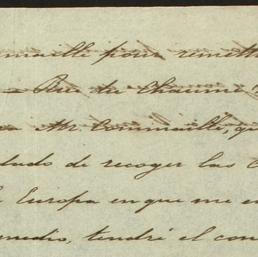 pour remett
a Rue du Chaume
a Mr. Commaille, qu
dado de recoger las C
Europa en que me en
medio, tendré el con